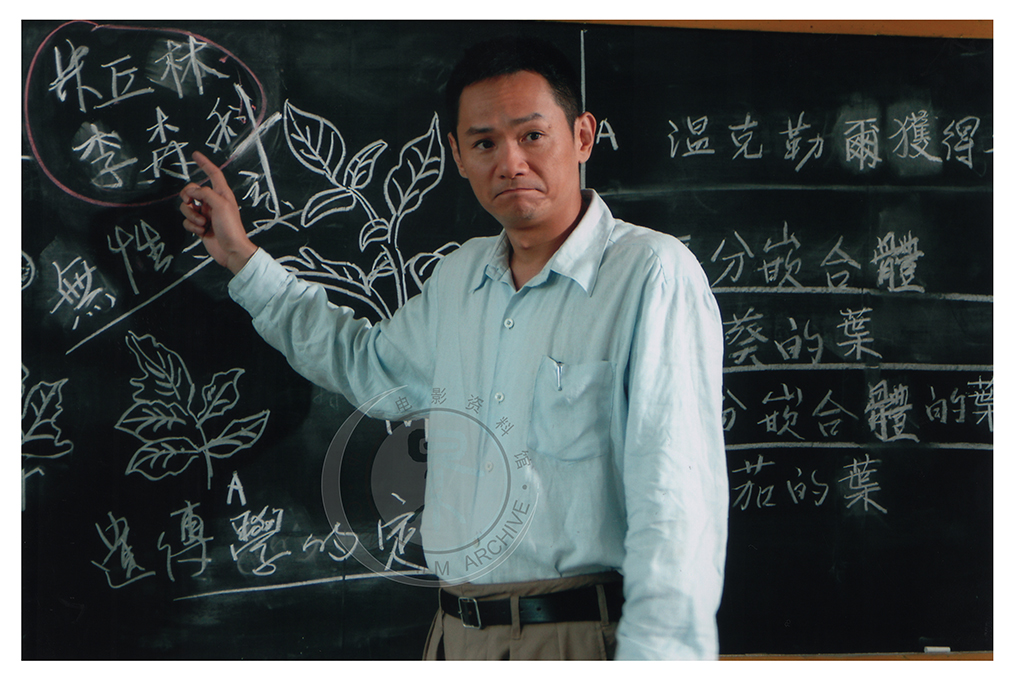 米丘林
李森科
無性
A
遺傳學的定
A 溫克勒爾獲得
分嵌合體
葵的葉
分嵌合體的葉
茄的葉
电影资料馆
ARCHIVE